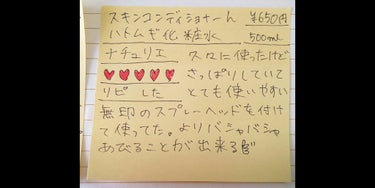 スキンコンディショナーん ¥650円
ハトムギ化粧水 500ml
ナチュリエ 久々に使ったけど
♥♥♥♥♥ さっぱりしていて
リピした とても使いやすい
無印のスプレーヘッドを付け
て使ってた。よりバシャバシャ
あびることが出来る